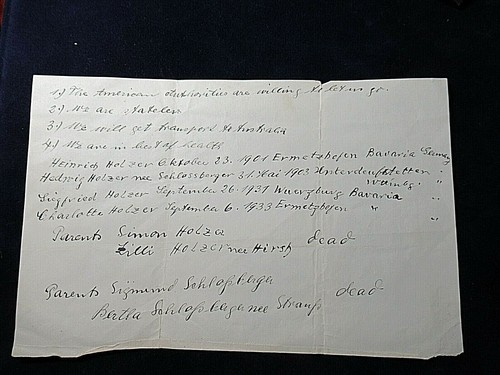 1.) The American authorities are willing to let us go.
2.) We are stateless
3.) We will get transport to Australia
4.) We are in best of health
Heinrich Holzer Oktober 23. 1901 Ermetzhofen Bavaria Germany
Hedwig Holzer nee Schlossberger 31. Mai 1903 Unterdeufstetten "
Württbg
Siegfried Holzer September 26. 1931 Wuerzburg Bavaria "
Charlotte Holzer September 6. 1933 Ermetzhofen " "
Parents Simon Holzer dead
Zilli Holzer nee Hirsh
Parents Sigmund Schloßberger dead
Bertha Schloßberger nee Strauß